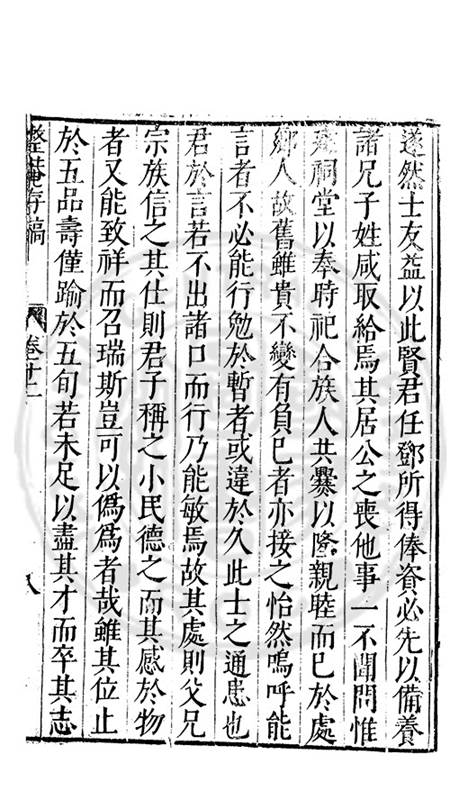 遂然士友益以此賢君任鄧所得俸資必先以備養
諸兄子姓咸取給焉其居公之喪他事一不聞問惟
祠堂以奉時祀合族人共爨以隆親睦而已於處
鄉人故舊雖貴不變有負已者亦接之怡然嗚呼能
言者不必能行勉於暫者或違於久此士之通患也
君於言若不出諸口而行乃能敏焉故其處則父兄
宗族信之其仕則君子稱之小民德之而其感於物
者又能致祥而召瑞斯豈可以僞爲者哉雖其位止
於五品壽僅踰於五旬若未足以盡其才而卒其志
整菴存稿 卷十二 八